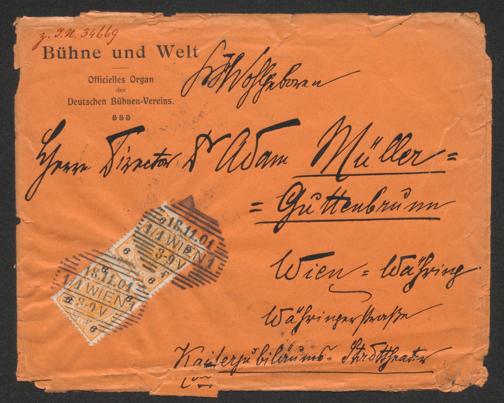 z. I.N. 34669
Bühne und Welt
Officielles Organ
des
Deutschen Bühnen-Vereins.
Sr Wohlgeboren
Herrn Director Dr Adam Müller=
= Guttenbrunn
Wien = Währing
Währingerstraße
Kaiserjubiläums-Stadttheater
18.11.01
1/1 WIEN 1
3-9V
18.11.01
1/1 WIEN 1
3-9V